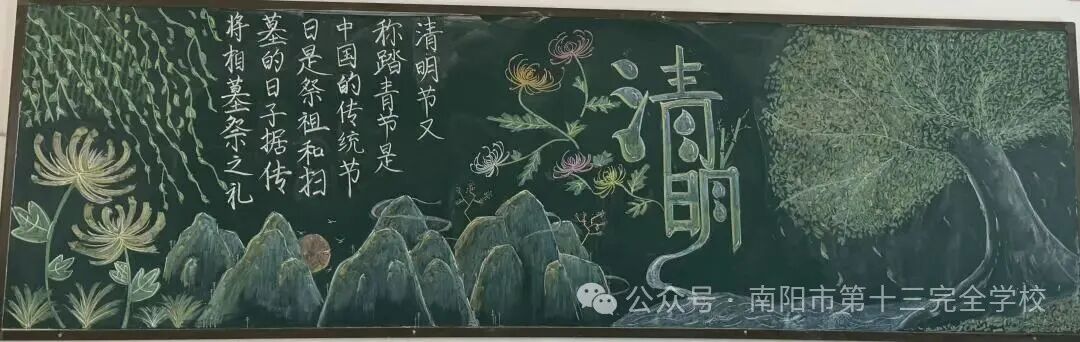 清明节又
称踏青节是
中国的传统节
日是祭祖和扫
墓的日子据传
将相墓祭之礼
清明
公众号·南阳市第十三完全学校